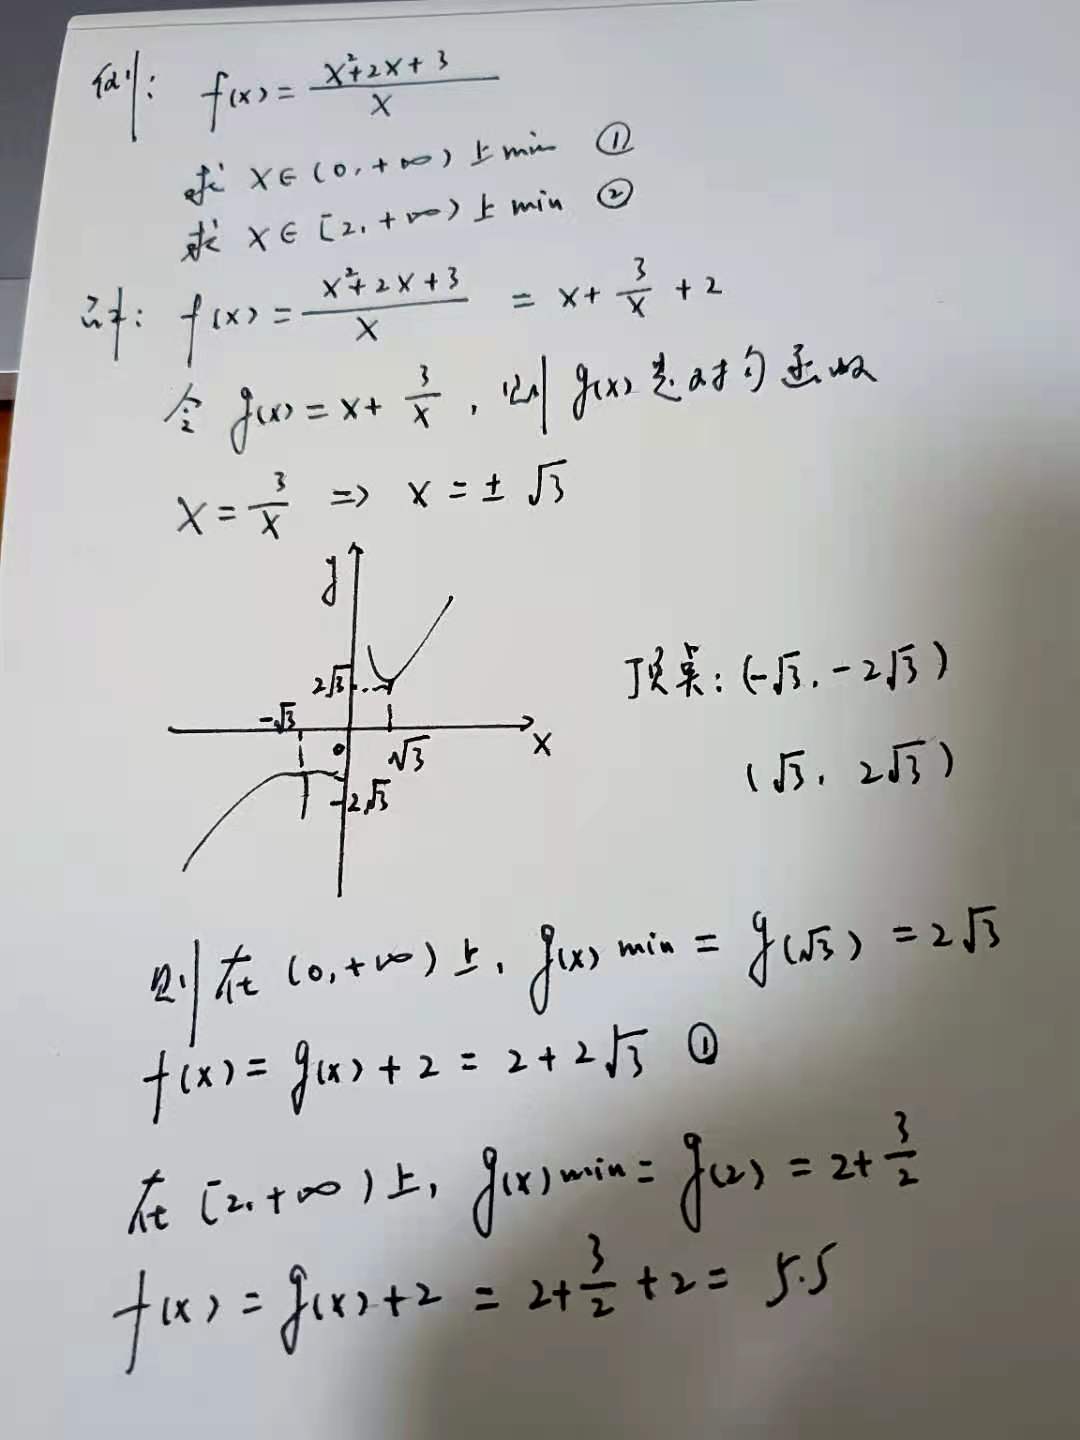 例: f(x) = (x²+2x+3)/x
求 x∈(0,+∞)上min ①
求 x∈[2,+∞)上min ②
计: f(x) = (x²+2x+3)/x = x + 3/x + 2
令 g(x) = x + 3/x , 则 g(x)是对勾函数
x = 3/x => x = ± √3
y
2√3
-√3
0
√3
x
-2√3
顶点: (-√3, -2√3)
(√3, 2√3)
则在 (0,+∞)上, g(x) min = g(√3) = 2√3
f(x) = g(x) + 2 = 2 + 2√3 ①
在 [2,+∞)上, g(x) min = g(2) = 2 + 3/2
f(x) = g(x)+2 = 2 + 3/2 + 2 = 5.5